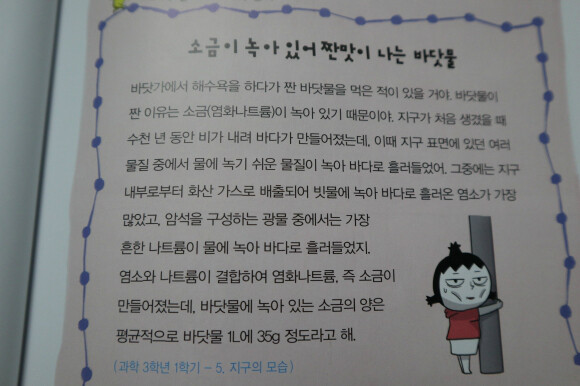 소금이 녹아 있어 짠맛이 나는 바닷물
바닷가에서 해수욕을 하다가 짠 바닷물을 먹은 적이 있을 거야. 바닷물이
짠 이유는 소금(염화나트륨)이 녹아 있기 때문이야. 지구가 처음 생겼을 때
수천 년 동안 비가 내려 바다가 만들어졌는데, 이때 지구 표면에 있던 여러
물질 중에서 물에 녹기 쉬운 물질이 녹아 바다로 흘러들었어. 그중에는 지구
내부로부터 화산 가스로 배출되어 빗물에 녹아 바다로 흘러온 염소가 가장
많았고, 암석을 구성하는 광물 중에서는 가장
흔한 나트륨이 물에 녹아 바다로 흘러들었지.
염소와 나트륨이 결합하여 염화나트륨, 즉 소금이
만들어졌는데, 바닷물에 녹아 있는 소금의 양은
평균적으로 바닷물 1L에 35g 정도라고 해.
(과학 3학년 1학기 - 5. 지구의 모습)